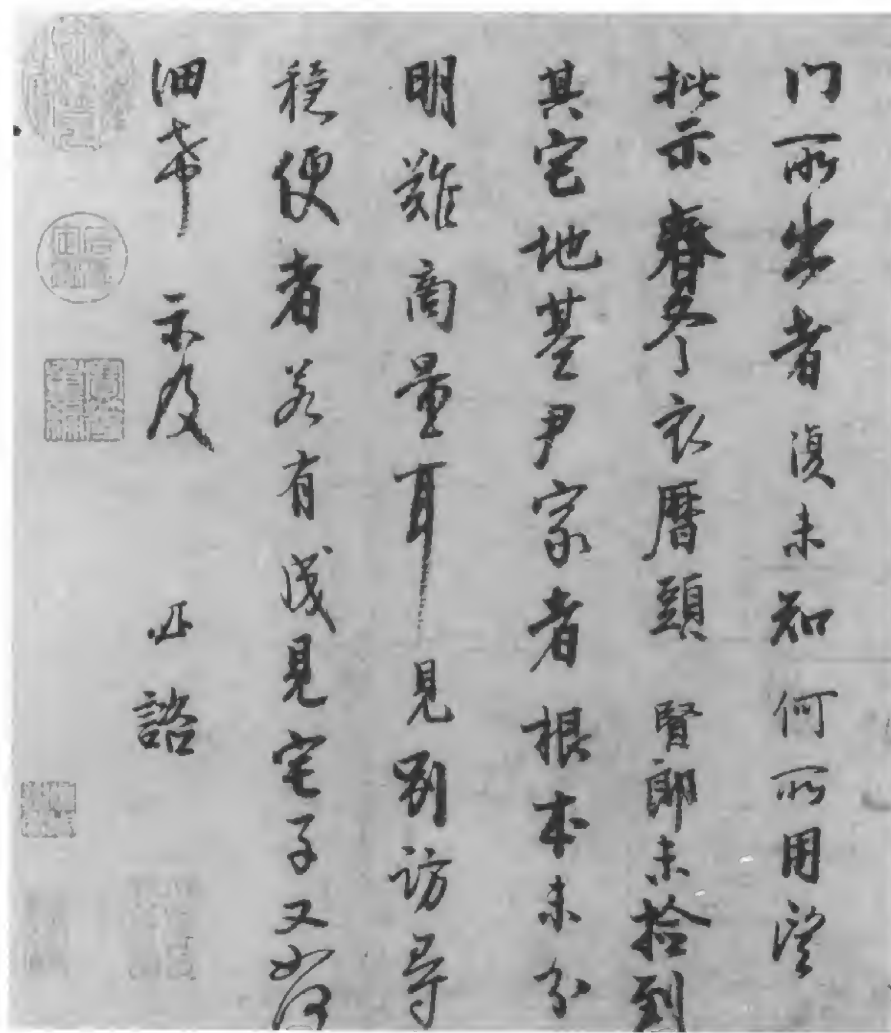 門所出者復未知何所用望
批示春冬衣曆頭賢郎未捡到
其宅地基尹家者根本未分
明難商量耳見别訪尋
穩便者若有成見宅子又如何
細希示及諮